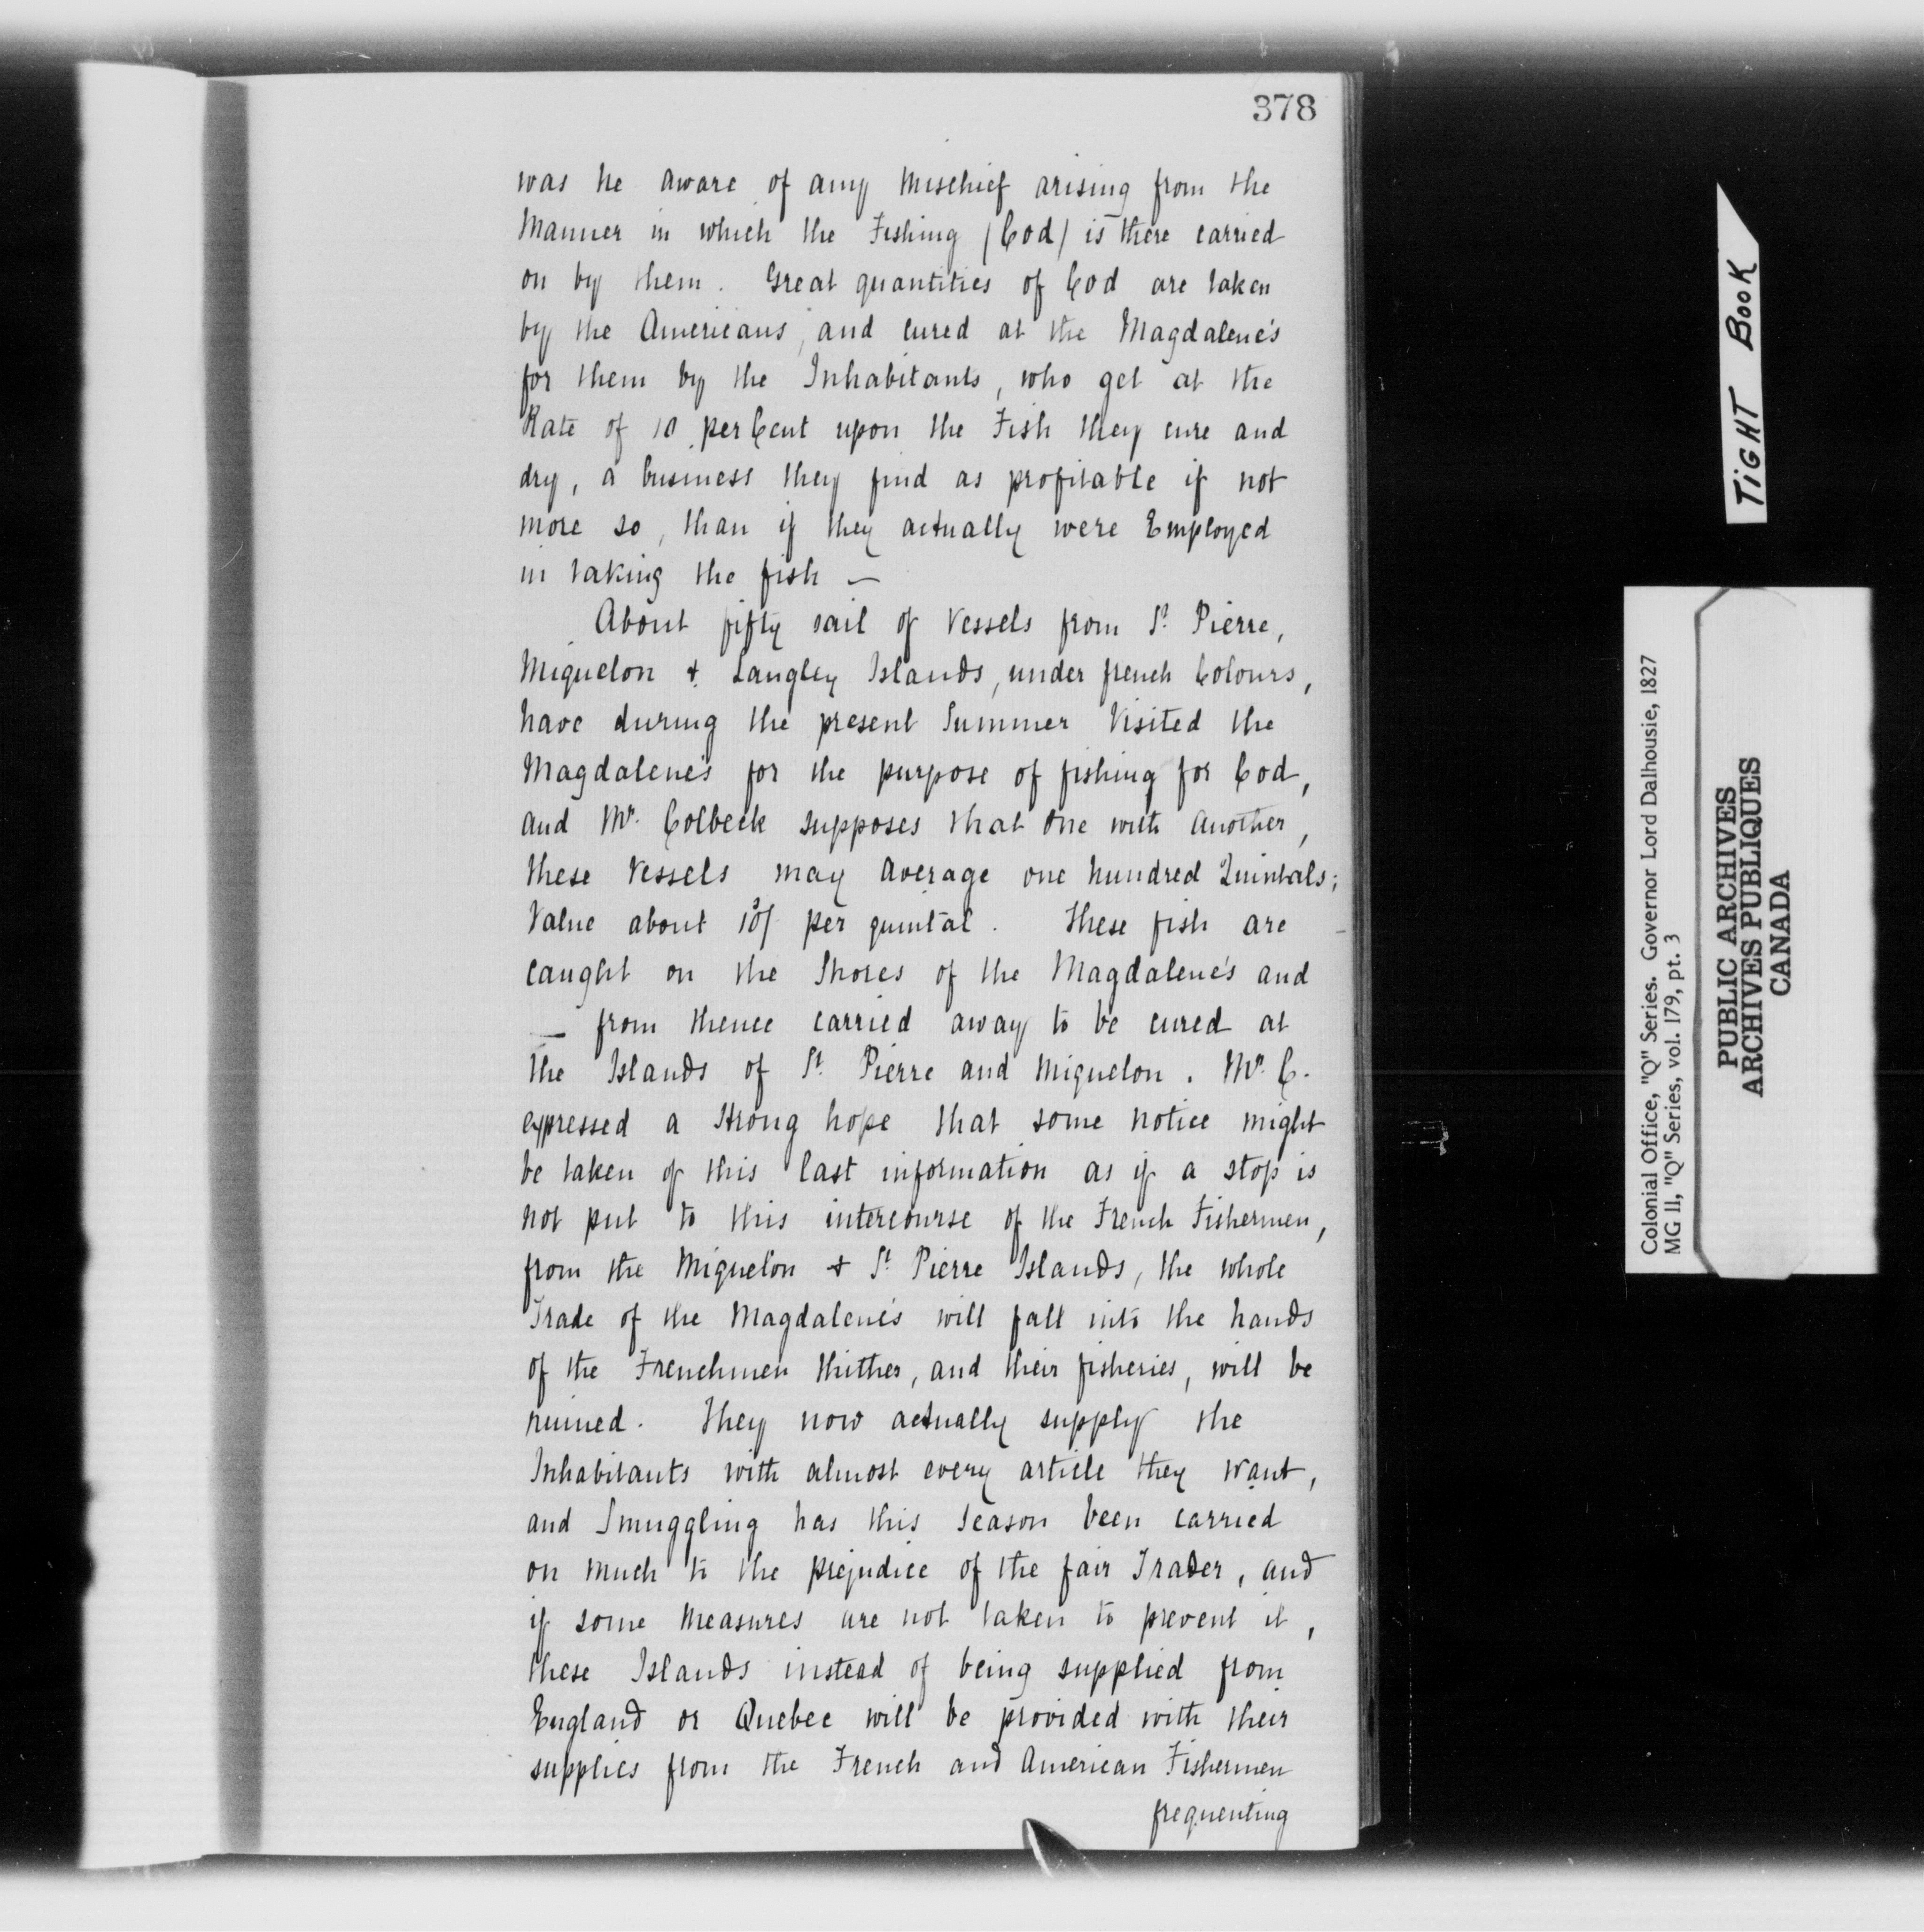 378
was he aware of any Mischief arising from the
Manner in which the Fishing (Cod) is there carried
on by them. Great quantities of Cod are taken
by the Americans, and cured at the Magdalene's
for them by the Inhabitants, who get at the
Rate of 10 per Cent upon the Fish they cure and
dry, a business they find as profitable if not
more so, than if they actually were Employed
in taking the fish —
About fifty sail of Vessels from St. Pierre,
Miquelon & Langley Islands, under french Colours,
have during the present Summer Visited the
Magdalene's for the purpose of fishing for Cod,
and Mr. Colbeck supposes that one with another,
these Vessels may average one hundred Quintals;
Value about per quintal. These fish are
caught on the Shores of the Magdalene's and
— from thence carried away to be cured at
the Islands of St. Pierre and Miquelon. Mr. C.
expressed a strong hope that some notice might
be taken of this last information as if a stop is
not put to this intercourse of the French Fishermen,
from the Miquelon & St. Pierre Islands, the whole
Trade of the Magdalene's will fall into the hands
of the Frenchmen thither, and their fisheries, will be
ruined. They now actually supply the
Inhabitants with almost every article they want,
and Smuggling has this Season been carried
on much to the prejudice of the fair Trader, and
if some measures are not taken to prevent it,
these Islands instead of being supplied from
England or Quebec will be provided with their
supplies from the French and American Fishermen
frequenting
TIGHT BOOK
Colonial Office, "Q" Series. Governor Lord Dalhousie, 1827
MG 11, "Q" Series, vol. 179, pt. 3
PUBLIC ARCHIVES
ARCHIVES PUBLIQUES
CANADA